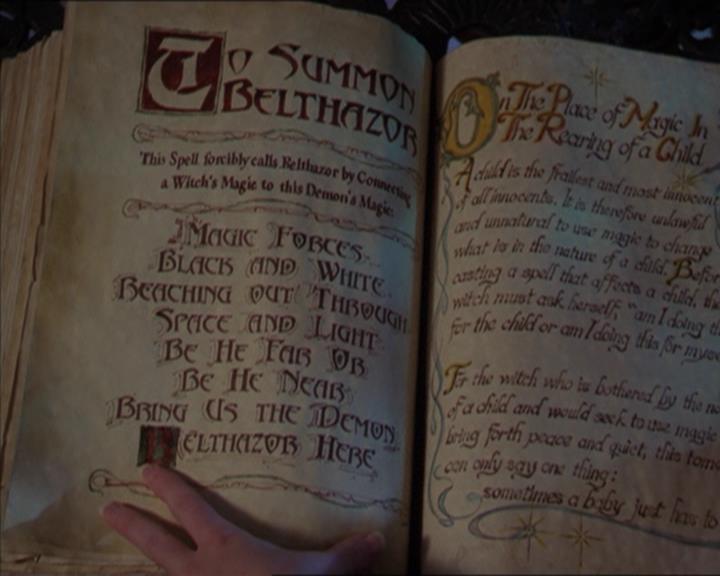 To Summon
Belthazor
This Spell forcibly calls Belthazor by Connecting
a Witch's Magic to this Demon's Magic:
Magic Forces
Black and White
Reaching out Through
Space and Light
Be He Far Or
Be He Near
Bring Us the Demon
Belthazor Here
On The Place of Magic In
The Rearing of a Child
A child is the frailest and most innocent
of all innocents. It is therefore unlawful
and unnatural to use magic to change
what is in the nature of a child. Before
casting a spell that affects a child, the
witch must ask herself, "am I doing
for the child or am I doing this for
For the witch who is bothered by the
of a child and would seek to use magic
bring forth peace and quiet, this tome
can only say one thing:
sometimes a baby just has to